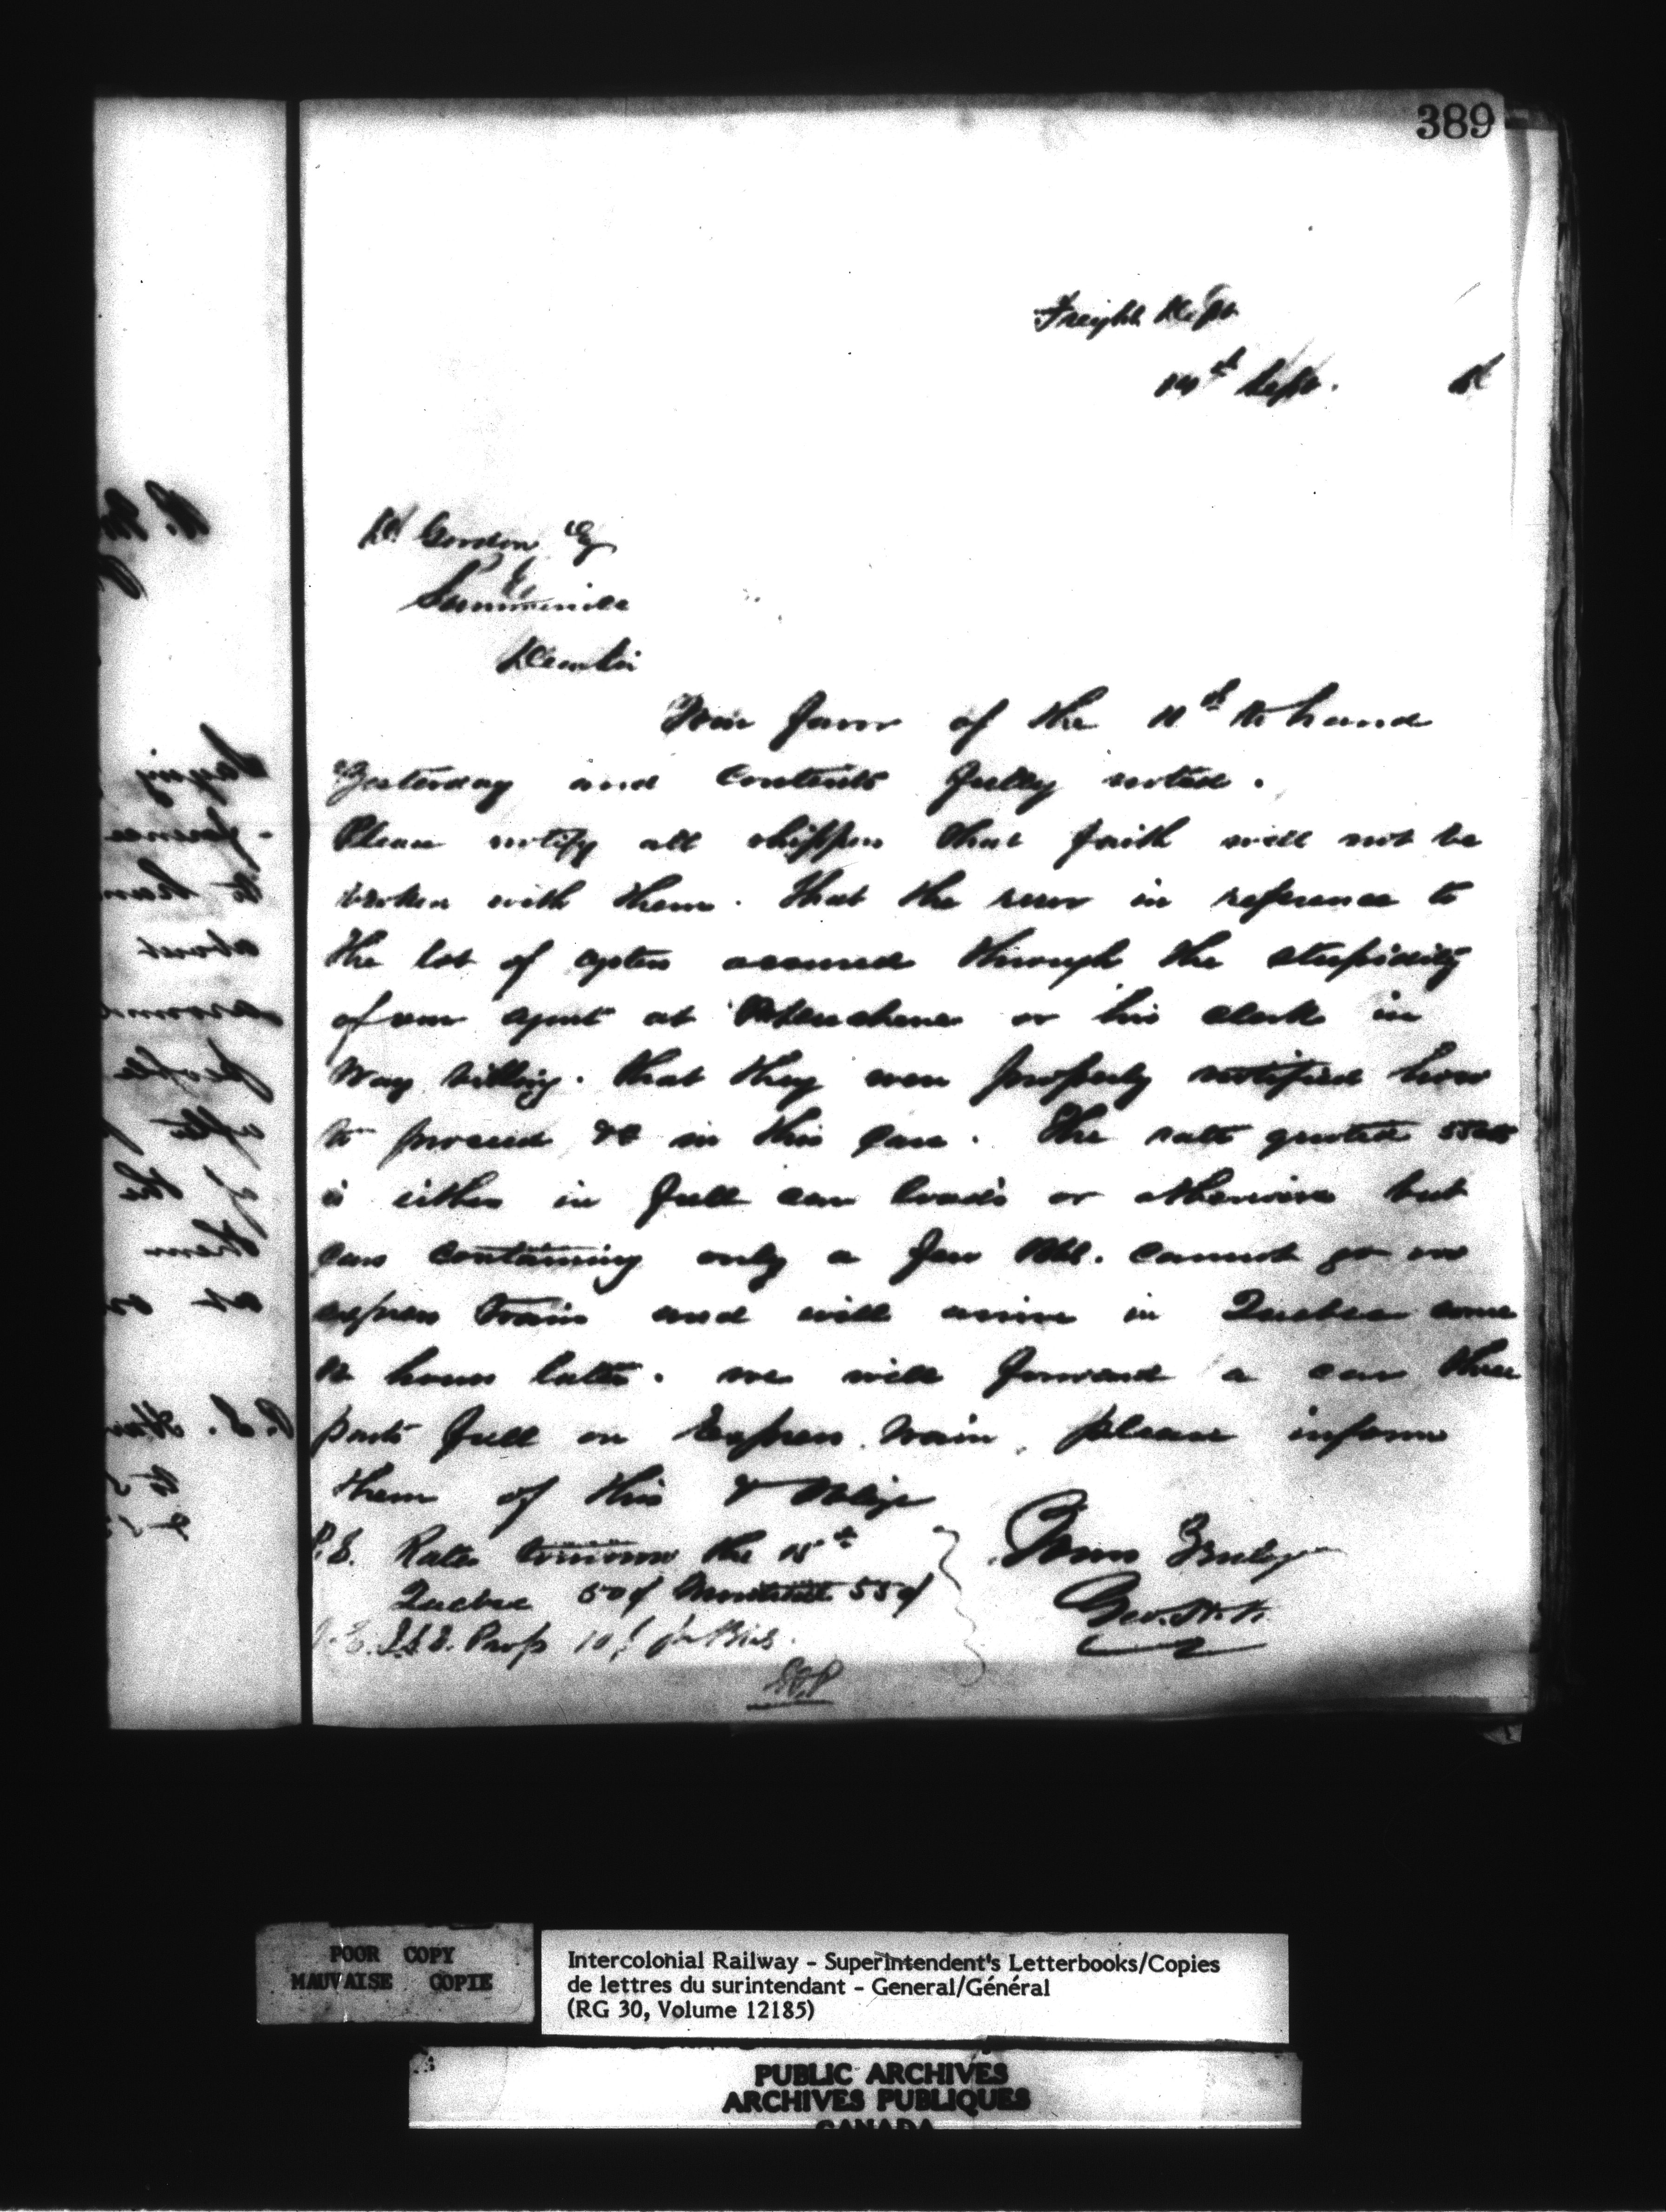 389
Freight Dept
14th Sept.
Gordon Esq
Dear Sir
Your favor of the 11th to hand
Yesterday and contents fully noted.
Please notify all shippers that faith will not be
broken with them. That the error in reference to
the lot of oysters occurred through the stupidity
of our agent at or his clerk in
Way billing. That they were properly notified how
to proceed &c in this case. The rate quoted 55cts
is either in full car loads or otherwise but
cars containing only a few Bbls. cannot go on
express train and will arrive in Quebec some
12 hours later. we will forward a car three
parts full on Express train, please inform
them of this & oblige
Rates tomorrow the 15th
Quebec 50¢ Montreal 55¢
Yours Truly
Geo.
P.E.I.S.S. Prop 10¢ per Bbl.
saying
to
about
people
after
of the
them
at
P.S.
to
POOR COPY
MAUVAISE COPIE
Intercolonial Railway - Superintendent's Letterbooks/Copies
de lettres du surintendant - General/Général
(RG 30, Volume 12185)
PUBLIC ARCHIVES
ARCHIVES PUBLIQUES
CANADA